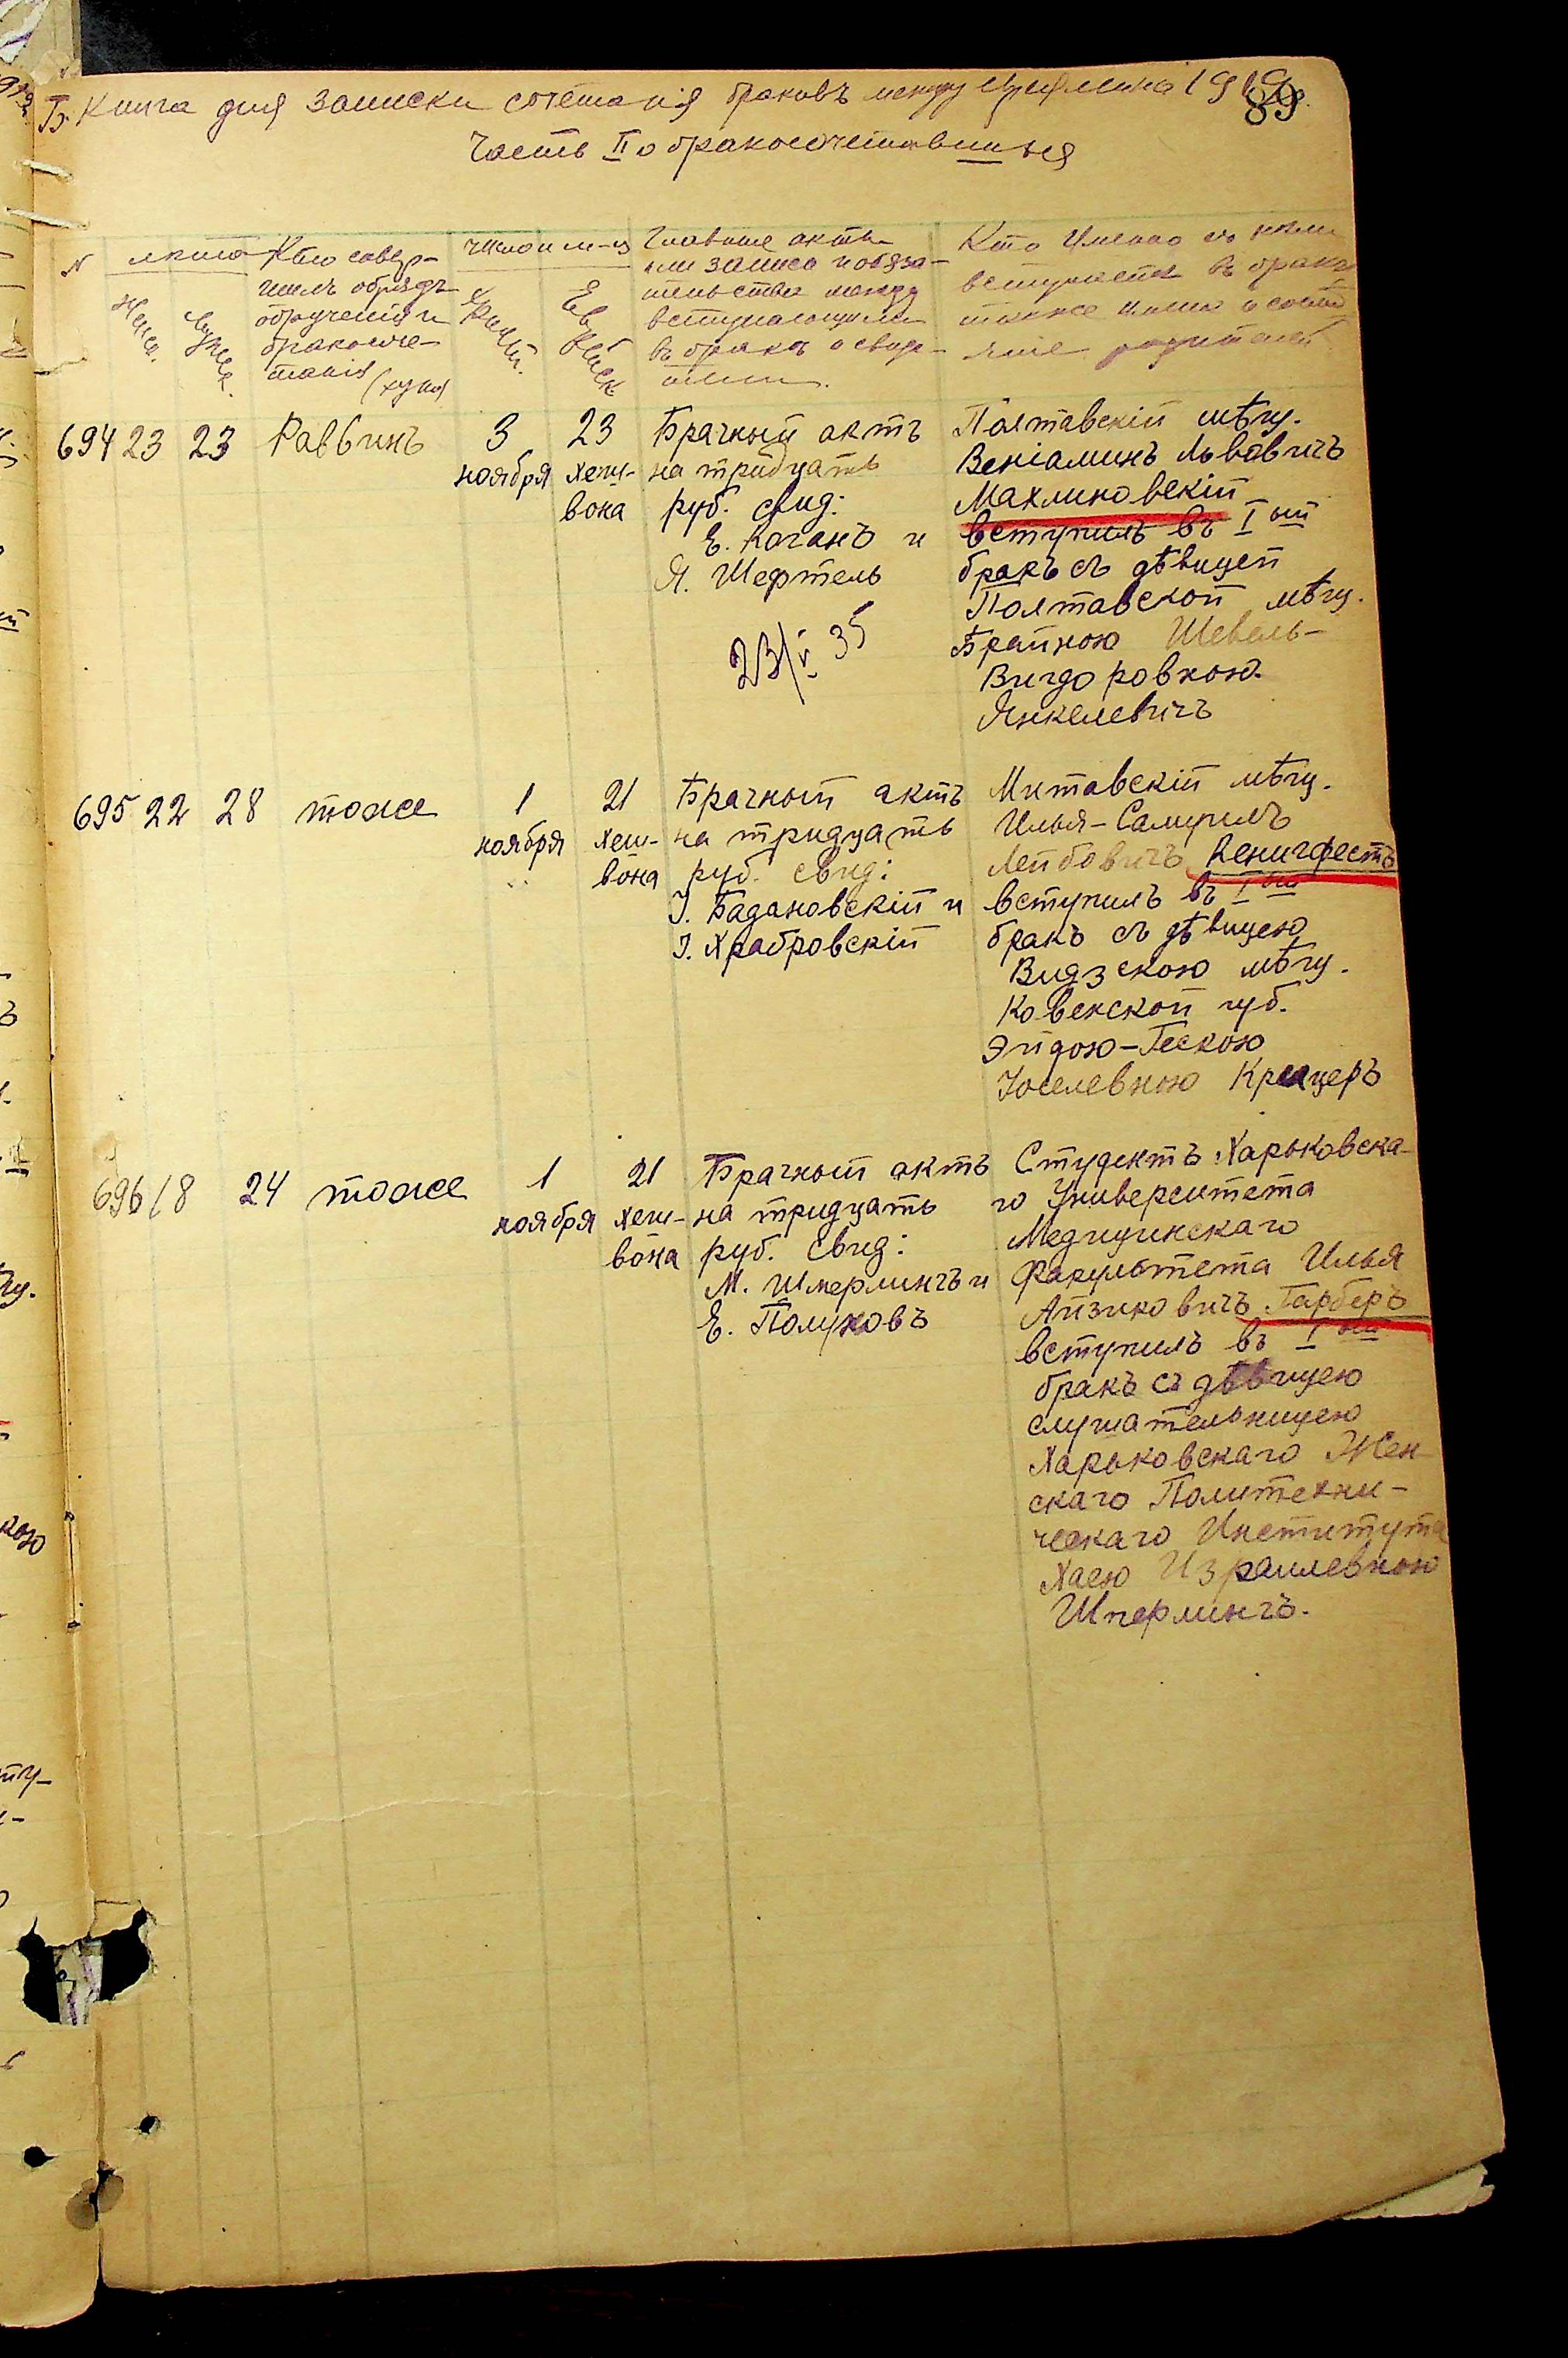 Б. Книга для записки сочетанія браковъ между Евреями на 1919 г.
89
Часть II о бракосочетавшихся
N
лѣта
Женс.
Мужск.
Кто совер-
шилъ обрядъ
обрученія и
бракосоче-
танія (хупа)
число и м-ц
Христ.
Еврейск.
Главные акты
или записи и обяза-
тельства между
вступающими
въ бракъ и свидѣ-
тели.
Кто именно съ кѣмъ
вступаетъ въ бракъ
также имена и состоя-
яніе родителей
694 23 23 Раввинъ 3
ноября
23
хеш-
вона
Брачный актъ
на тридцать
руб. свид:
Е. Коганъ и
Я. Шефтель
23/V 35
Полтавскій мѣщ.
Веніаминъ Львовичъ
Махлиновскій
вступилъ въ I ый
бракъ съ дѣвицей
Полтавской мѣщ.
Брайною Шевель-
Вигдоровною
Янкелевичъ
695 22 28 тоже 1
ноября
21
хеш-
вона
Брачный актъ
на тридцать
руб. свид:
І. Бадановскій и
І. Храбровскій
Митавскій мѣщ.
Илья-Самуилъ
Лейбовичъ Кенигфестъ
вступилъ въ I ый
бракъ съ дѣвицею
Видзскою мѣщ.
Ковенской губ.
Эйдою-Гескою
Іоселевною Крецеръ
696 18 24 тоже 1
ноября
21
хеш-
вона
Брачный актъ
на тридцать
руб. свид:
М. Шперлингъ и
Е. Полуховъ
Студентъ Харьковска-
го Университета
Медицинскаго
Факультета Илья
Айзиковичъ Гарберъ
вступилъ въ I ый
бракъ съ дѣвицею
слушательницею
Харьковскаго Жен-
скаго Политехни-
ческаго Института
Хаею Израилевною
Шперлингъ.